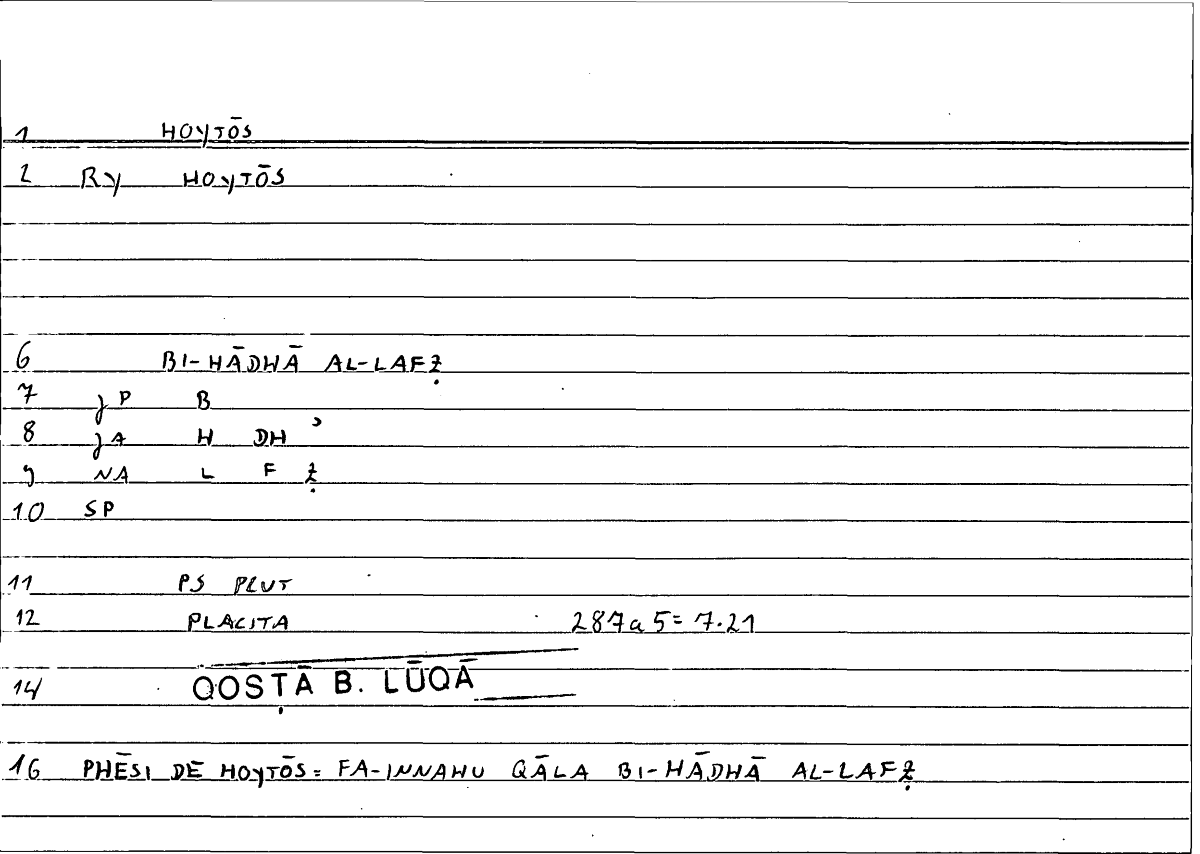 1 HOYTŌS
2 RY HOYTŌS
6 BI-HĀDHĀ AL-LAFẒ
7 JP B
8 JA H DH ʾ
9 NA L F Ẓ
10 SP
11 PS PLUT
12 PLACITA 287a5=7.21
14 QOSṬĀ B. LŪQĀ
16 PHĒSI DE HOYTŌS= FA-INNAHU QĀLA BI-HĀDHĀ AL-LAFẒ